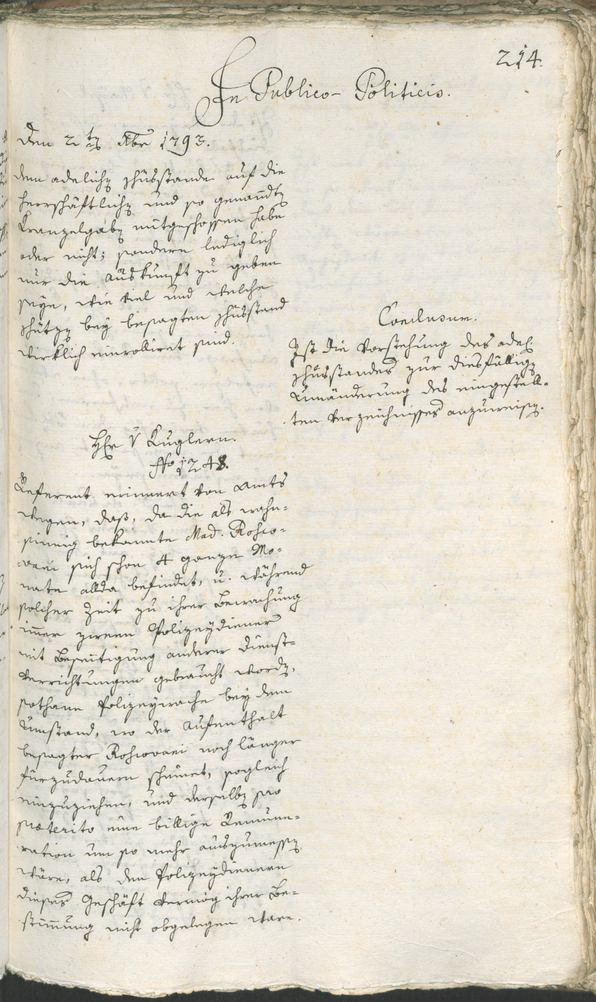 214.
In Publico-Politicis.
Den 2ten Xbr 1793.
dem adelichen Schüßstande auf die
herrschäftlichen und so genandten
Kranzelgaben mitgeschossen habe
oder nicht; sondern lediglich
nur die Auskunft zu geben
seye, wie viel und welche
Schützen bey besagten Schüßstand
wirklich einrollirt sind.
Conclusum.
Ist die Vorstehung des adel.
Schüßstandes zur diesfälligen
Umänderung des eingestell-
ten Verzeichnißes anzuweisen.
Hr. v Kuglern.
No 1248.
Referent erinnert von Amts
wegen, daß, da die als wahn-
sinnig bekannte Mad. Rosio-
vani sich schon 4 ganze Mo-
nate allda befindet, u. während
solcher Zeit zu ihrer Bewachung
immer zween Polizeydiener
mit Beseitigung anderer Dienst-
verrichtungen gebraucht worden,
sothane Polizeywache bey dem
Umstand, wo der Aufenthalt
besagter Rosiovani noch länger
fürzudauern scheinet, sogleich
einzuziehen, und derselben pro
præterito eine billige Remune-
ration um so mehr auszumessen
wäre, als den Polizeydienern
dieses Geschäft vermög ihrer Be-
stimmung nicht obgelegen ware.